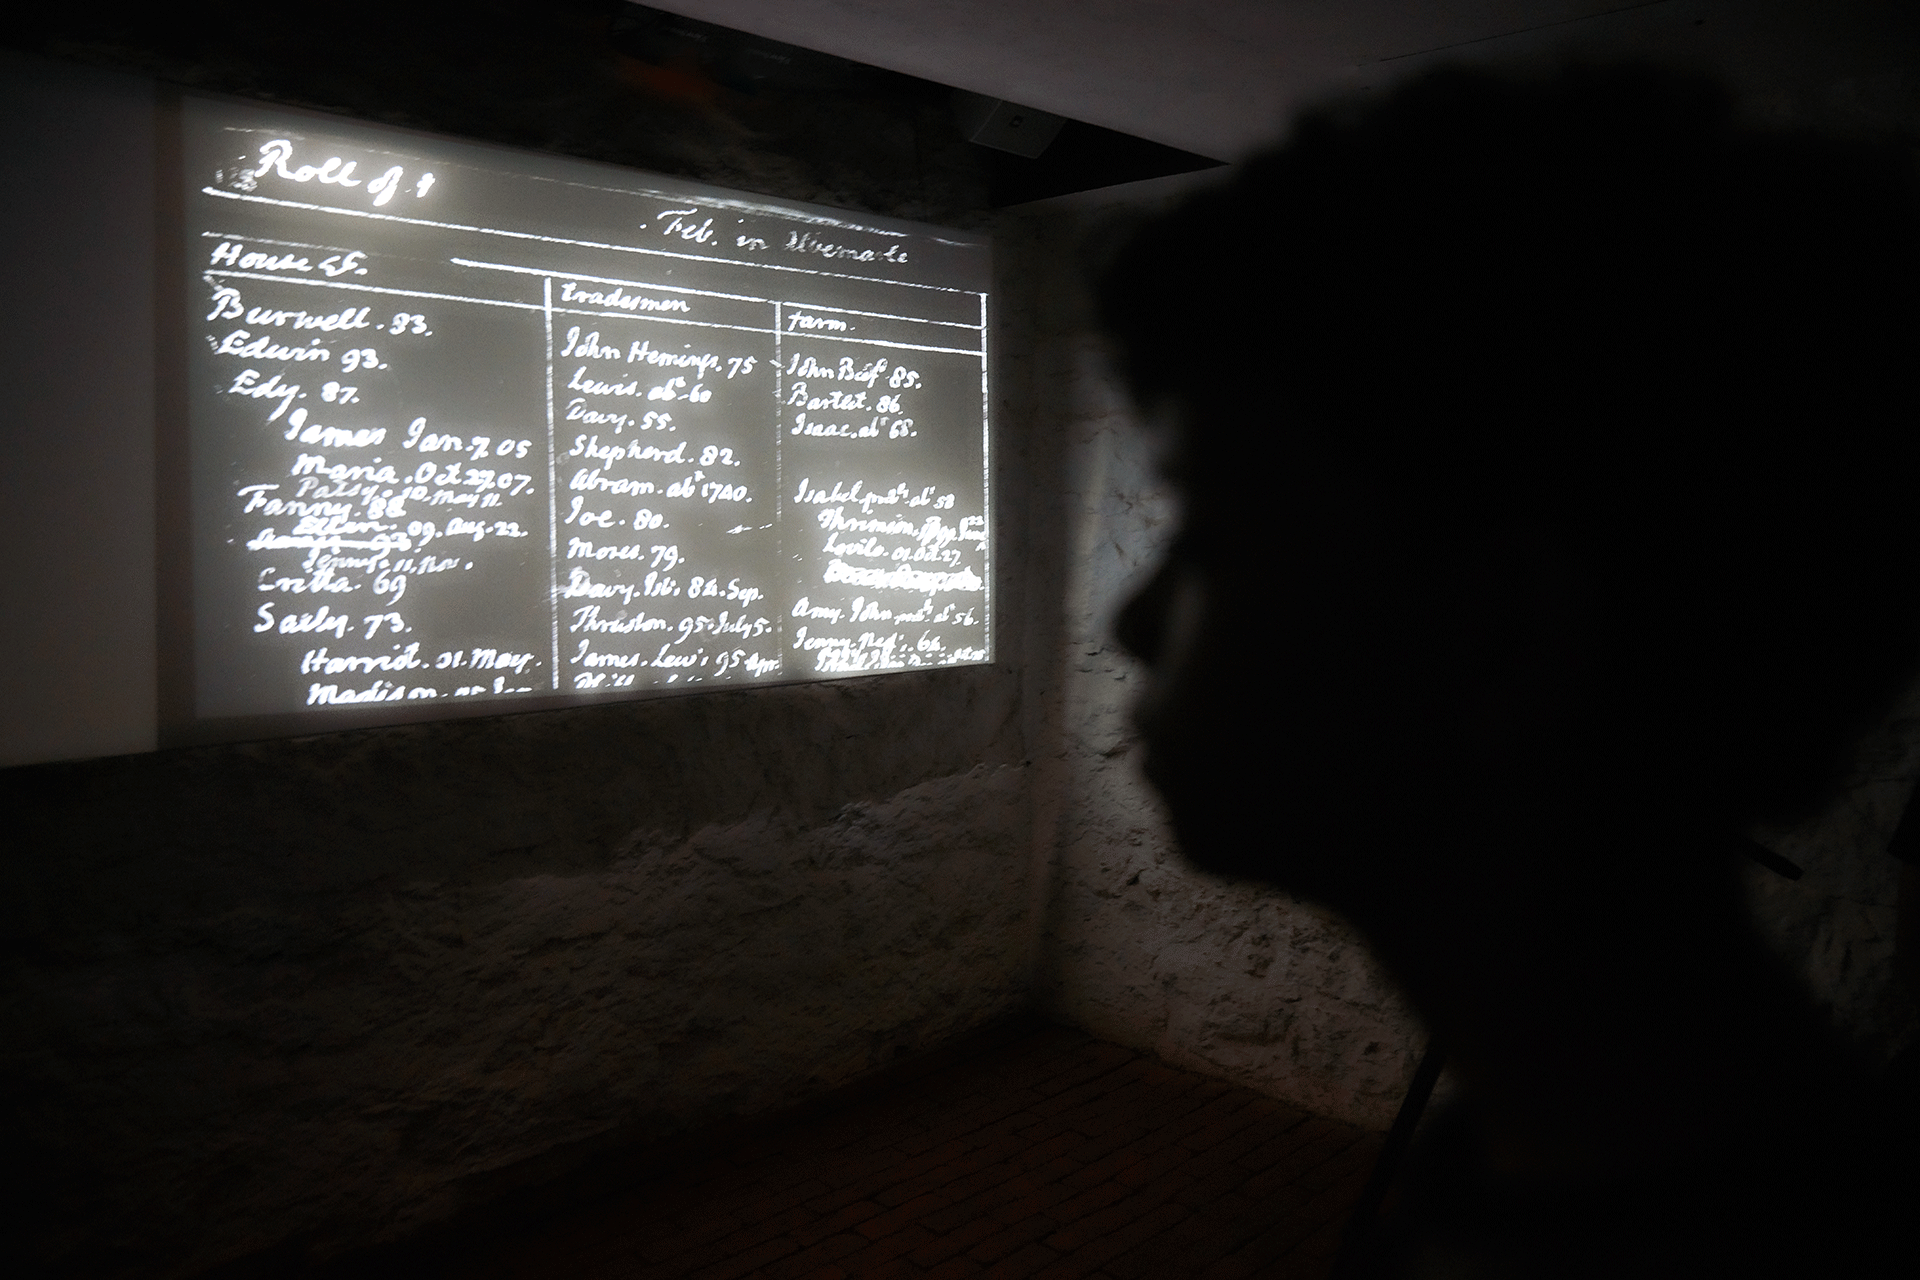 Roll of
Feb. in Albemarle
House &c.
Burwell. 83.
Edwin 93.
Edy. 87.
James Jan. 7. 05
Maria. Oct 27. 07.
Patsy. 10. May 11.
Fanny. 88
Ellen. 09. Aug. 22.
Jenny. 11. Nov.
Critta. 69
Sally. 73.
Harriet. 01. May.
Madison. 05 Jan
tradesmen
John Hemings. 75
Lewis. abt 60
Davy. 55.
Shepherd. 82.
Abram. abt 1740.
Joe. 80.
Moses. 79.
Davy. Isb's. 84. Sep.
Thruston. 95. July 5.
James. Lew's 95 Apr.
farm.
John Bedf. 85.
Bartlet. 86.
Isaac. abt 68.
Isabel. abt 58
Thrimson.
Lovilo. 01. Oct. 27.
Amy. John abt 56.
Jenny. Ned's. 64.